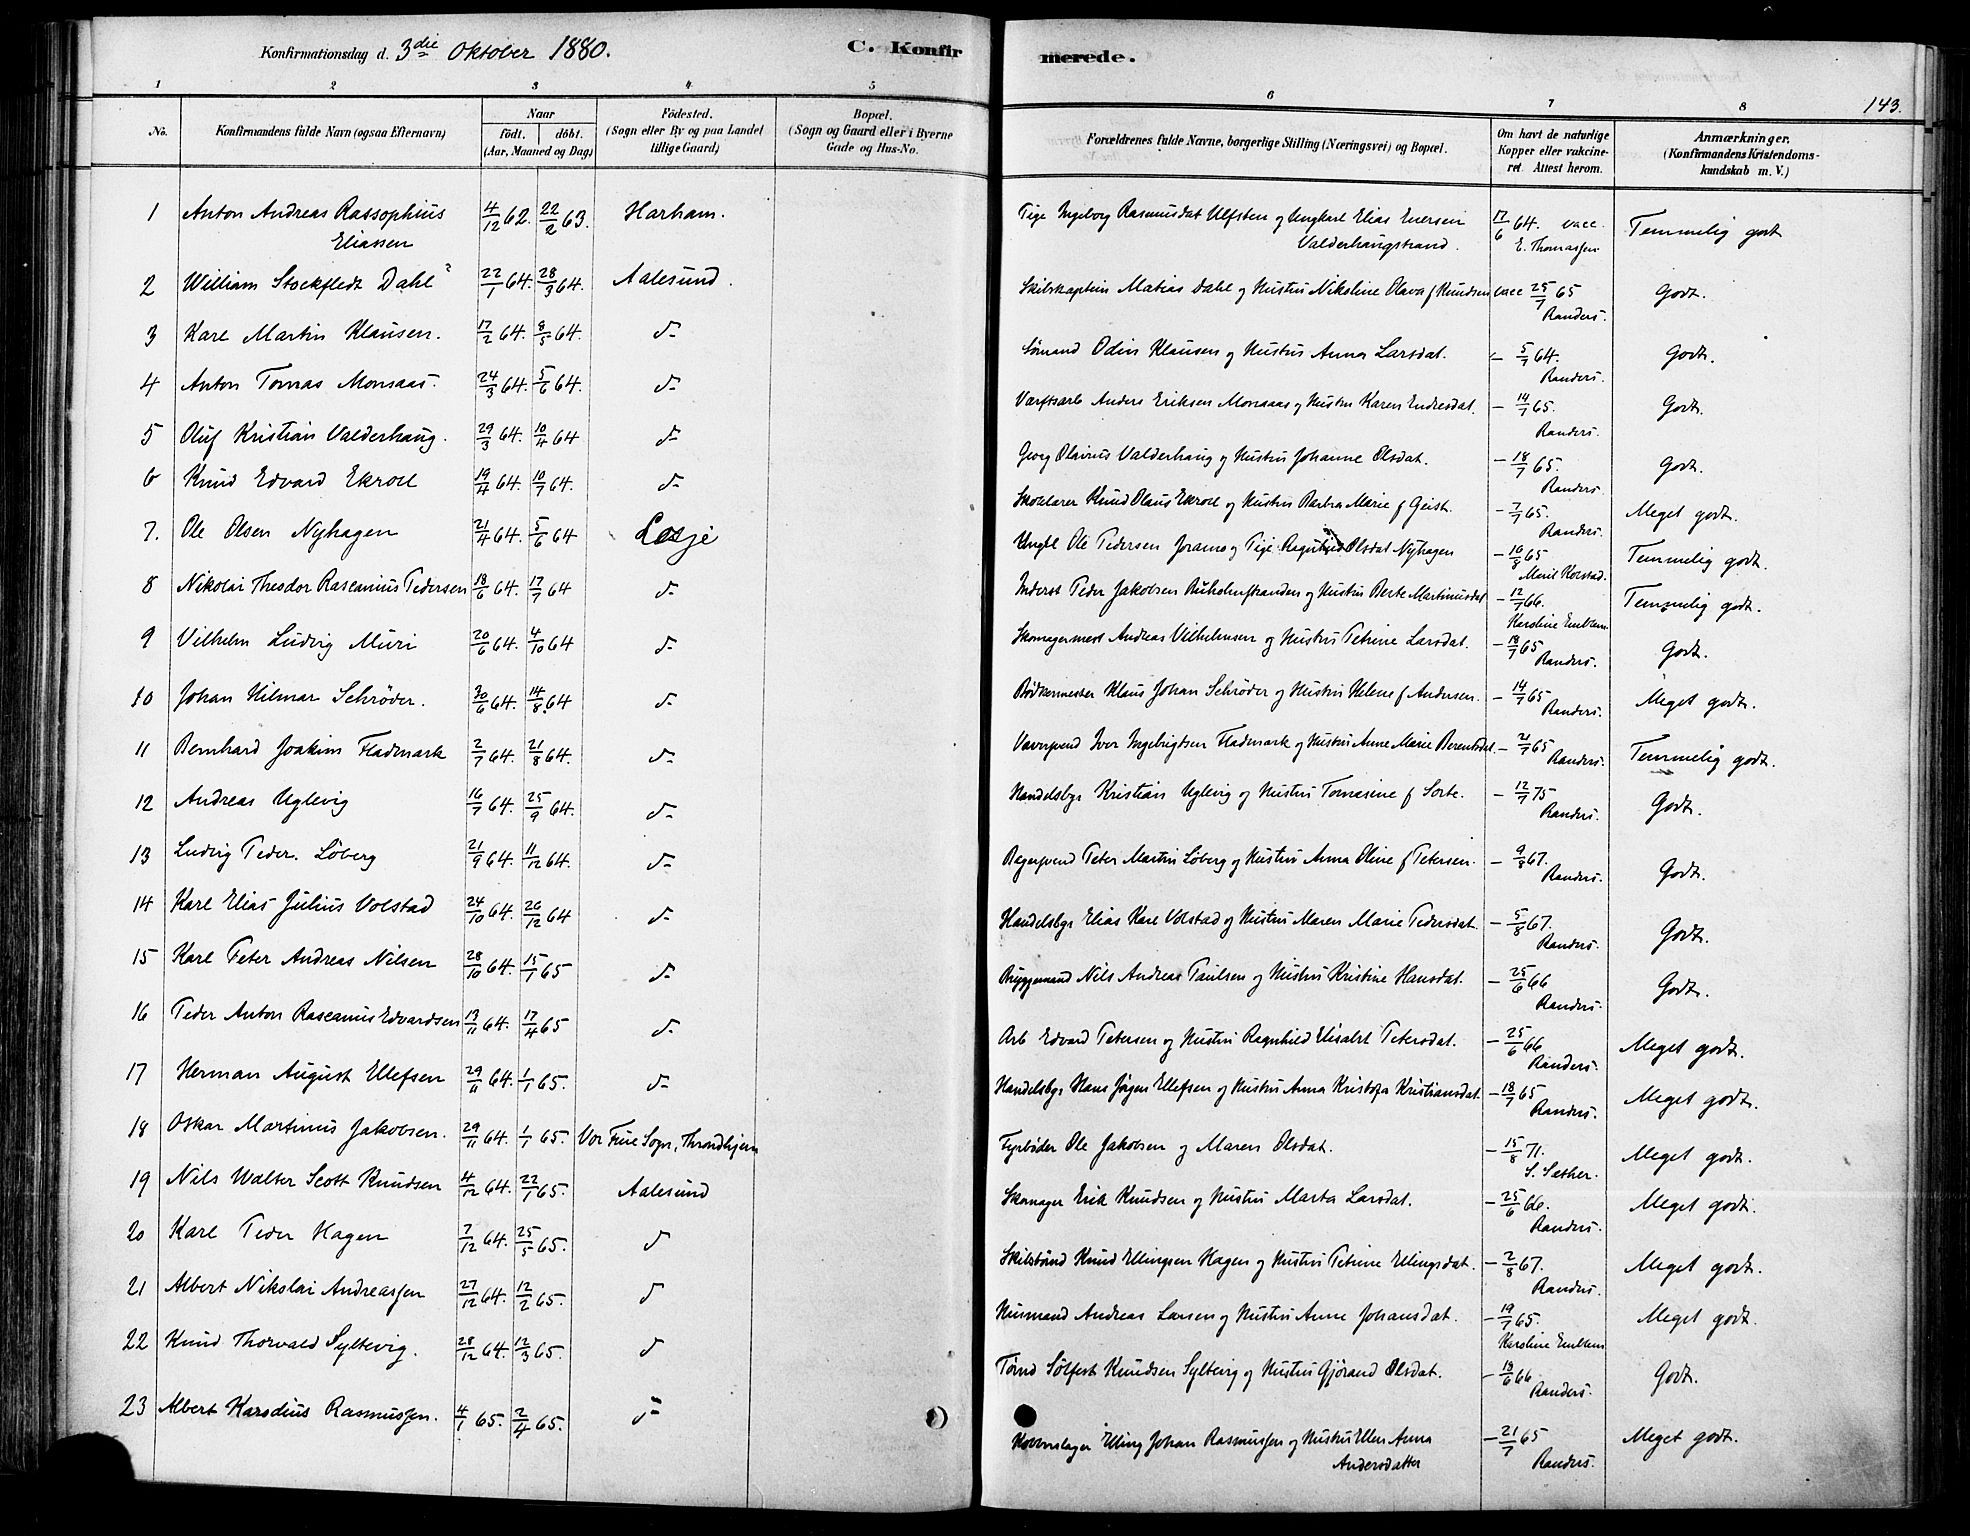 Konfirmationsdag d. 3die Oktober 1880.
C. Konfirmerede.
143.
1 2 3 4 5 6 7 8
No.
Konfirmandens fulde Navn (ogsaa Efternavn)
Naar
födt. döbt.
(Aar, Maaned og Dag)
Födested.
(Sogn eller By og paa Landet
tillige Gaard)
Bopæl.
(Sogn og Gaard eller i Byerne
Gade og Hus-No.
Forældrenes fulde Navne, borgerlige Stilling (Næringsvei) og Bopæl.
Om havt de naturlige
Kopper eller vakcine-
ret. Attest herom.
Anmærkninger.
(Konfirmandens Kristendoms-
kundskab m. V.)
1 Anton Andreas Rassophius 4/12 62. 22/2 63. Harham. Pige Ingeborg Rasmusdat Ulfsten og Ungkarl Elias Enersen 17/6 64. vacc. Temmelig godt
Eliassen Valderhaugstrand. E. Thomassen
2 William Stockfledt Dahl 22/1 64. 28/3 64. Aalesund. Skibskaptein Matias Dahl og Hustru Nikoline Olava f Knudsen vacc 25/7 65 Godt.
Randers.
3 Karl Martin Klausen. 17/2 64. 8/5 64. d- Sømand Odin Klausen og Hustru Anna Larsdat. - 5/7 64. Godt.
Randers.
4 Anton Tomas Monsaas. 24/3 64. 5/6 64. d- Værftsarb Anders Eriksen Monsaas og Hustru Karen Endresdat. - 19/7 65. Godt.
Randers.
5 Oluf Kristian Valderhaug. 29/3 64. 10/4 64 d- Georg Olavus Valderhaug og Hustru Johanne Olsdat. - 18/7 65. Godt.
Randers.
6 Knud Edvard Ekroll 19/4 64. 10/7 64. d- Skolelærer Knud Olaus Ekroll og Hustru Barbra Marie f Geist. - 7/7 65. Meget godt.
Randers.
7. Ole Olsen Nyhagen 21/4 64. 5/6 64 Lesje Ungkl Ole Pedersen Joramo og Pige Ragnhild Olsdat Nyhagen - 10/8 65 Temmelig godt.
Marit Korstad.
8 Nikolai Theodor Rascanius Pedersen 18/6 64. 17/7 64 d- Inderst Peder Jakobsen Buholmstranden og Hustru Berte Martinusdat - 12/7 66. Temmelig godt.
Karoline Emblem
9 Vilhelm Ludvig Muri 20/6 64. 4/10 64 d- Skomagermest Andreas Vilhelmsen og Hustru Petrine Larsdat. - 18/7 65 Godt.
Randers.
10 Johan Hilmar Schrøder. 30/6 64. 14/8 64 d- Bødkermester Klaus Johan Schrøder og Hustru Helene f Andersen. - 14/7 65 Meget godt.
Randers.
11 Bernhard Joakim Fladmark 2/7 64. 21/8 64. d- Iver Ingebrigtsen Fladmark og Hustru Anne Marie Berentsdat. - 21/7 65 Temmelig godt.
Randers.
12 Andreas Uglevig 16/7 64. 25/9 64. d- Handelsbgr Kristian Uglevig og Hustru Tomasine f Sorte. - 12/7 75 Godt.
Randers.
13 Ludvig Peder. Löberg 21/9 64. 11/12 64. d- Bagersvend Peter Martin Löberg og Hustru Anna Oline f Petersen. - 9/8 67. Godt.
Randers.
14 Karl Elias Julius Volstad 24/10 64. 26/12 64 d- Handelsbgr Elias Karl Volstad og Hustru Maren Marie Pedersdat. - 5/8 67. Godt.
Randers.
15 Karl Peter Andreas Nilsen 28/10 64. 15/1 65 d- Bryggemand Nils Andreas Paulsen og Hustru Kristine Hansdat. - 25/6 66 Godt.
Randers.
16 Peder Anton Rascanius Edvardsen 13/11 64. 17/4 65 d- Arb Edvard Petersen og Hustru Ragnhild Elisabet Petersdat. - 25/6 66 Meget godt.
Randers.
17 Herman August Ellefsen 29/11 64. 1/1 65. d- Handelsbgr Hans Jörgen Ellefsen og Hustru Anna Kristofa Kristiansdat. - 18/7 65 Meget godt.
Randers.
18 Oskar Martinus Jakobsen. 29/11 64. 1/1 65. Vor Frue Sogn, Throndhjem Fyrbøder Ole Jakobsen og Maren Olsdat. - 15/8 71. Meget godt.
S. Sæther.
19 Nils Walter Scott Knudsen 4/12 64. 22/1 65. Aalesund Skomager Erik Knudsen og Hustru Marta Larsdat. - 25/6 66. Meget godt.
Randers.
20 Karl Peder Hagen 7/12 64. 25/5 65. d Knud Ellingsen Hagen og Hustru Petrine Ellingsdat. - 2/8 67. Meget godt.
Randers.
21 Albert Nikolai Andreassen 27/12 64. 12/2 65. d Husmand Andreas Larsen og Hustru Anne Johansdat. - 19/7 65. Meget godt.
Karoline Emblem
22 Knud Thorvald Syltevig. 28/12 64. 12/3 65. d Sölfest Knudsen Syltevig og Hustru Gjørand Olsdat. - 18/6 66. Godt.
Randers.
23 Albert Karsdius Rasmussen. 4/1 65. 2/4 65. d- Kobberslager Elling Johan Rasmussen og Hustru Ellen Anna - 21/7 65 Meget godt.
Andersdatter Randers.